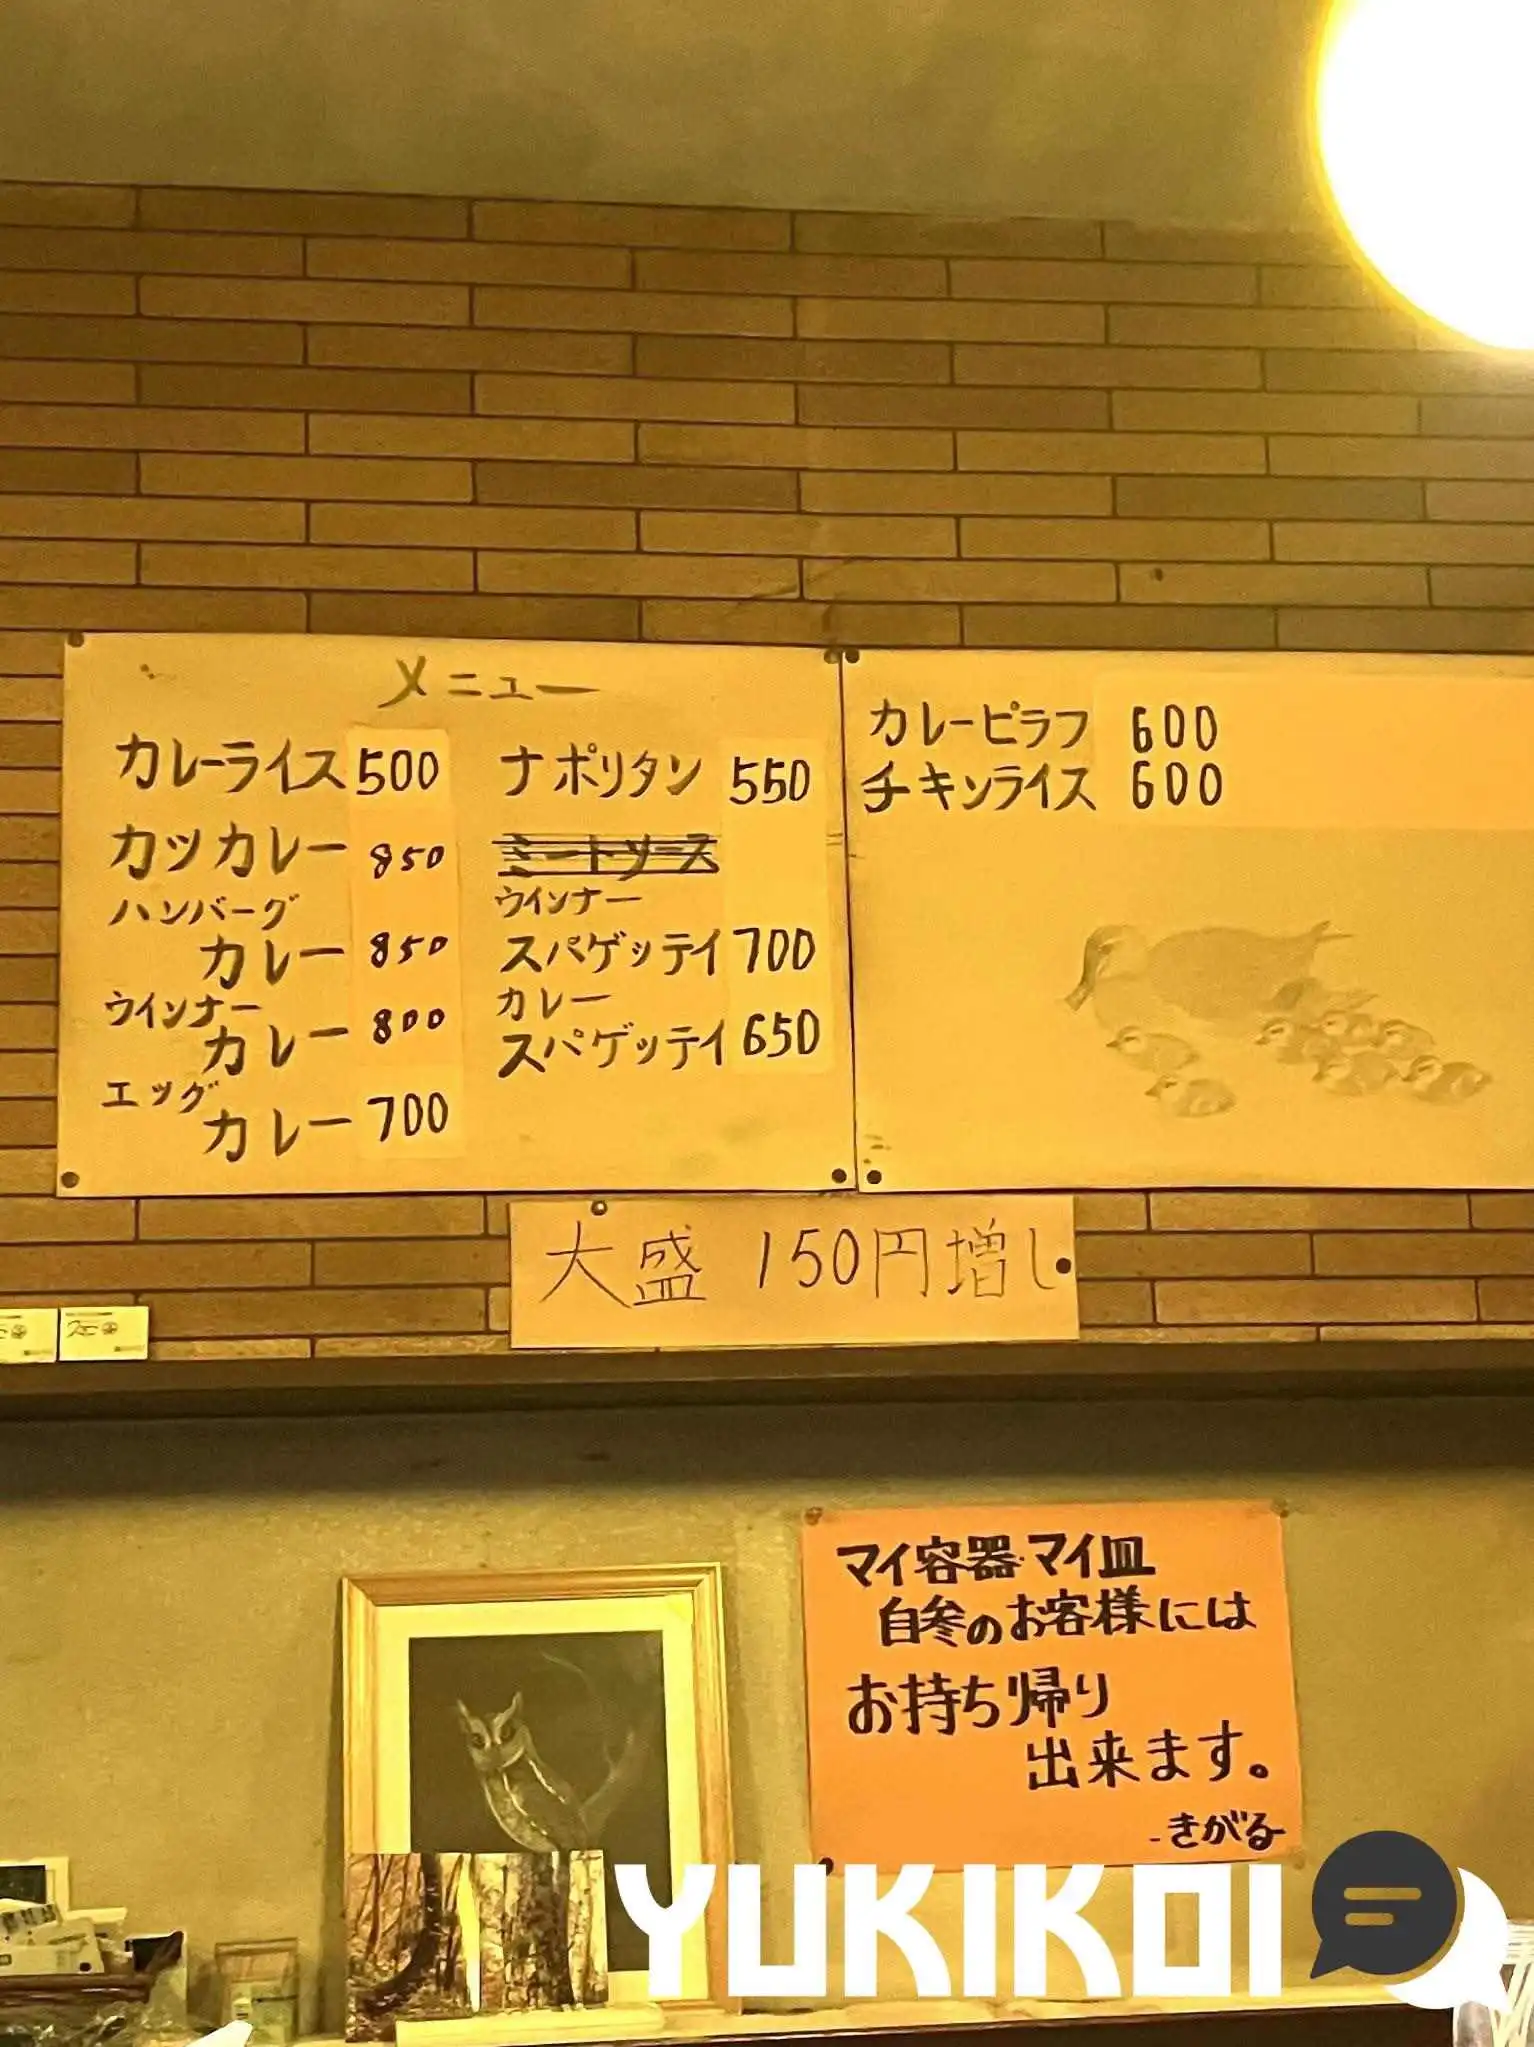 メニュー
カレーライス 500
カツカレー 850
ハンバーグ
カレー 850
ウインナー
カレー 800
エッグ
カレー 700
ナポリタン 550
ミートソース
ウインナー
スパゲッテイ 700
カレー
スパゲッテイ 650
カレーピラフ 600
チキンライス 600
大盛 150円増し
マイ容器・マイ皿
自参のお客様には
お持ち帰り
出来ます。
-きがる
YUKIKOI